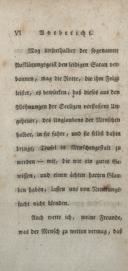 VI Vorbericht.
Mag immerhalber der sogenannte
Aufklärungsgeist den leidigen Satan ver-
bannen, mag die Rotte, die ihm Folgt
leistet, es bewürken, daß dieses aus den
Wohnungen der Seeligen verstoßene Un-
geheuer, des Unglaubens der Menschen
halber, in sie fahre, und sie selbst dahin
bringe, Teufel in Menschengestalt zu
werden — mir, die wir ein gutes Ge-
wissen, und einen ächten harten Glau-
ben haben, lassen uns von Neuerungs-
sucht nicht blenden.
Auch wette ich, meine Freunde,
was der Mensch zu wetten vermag, daß